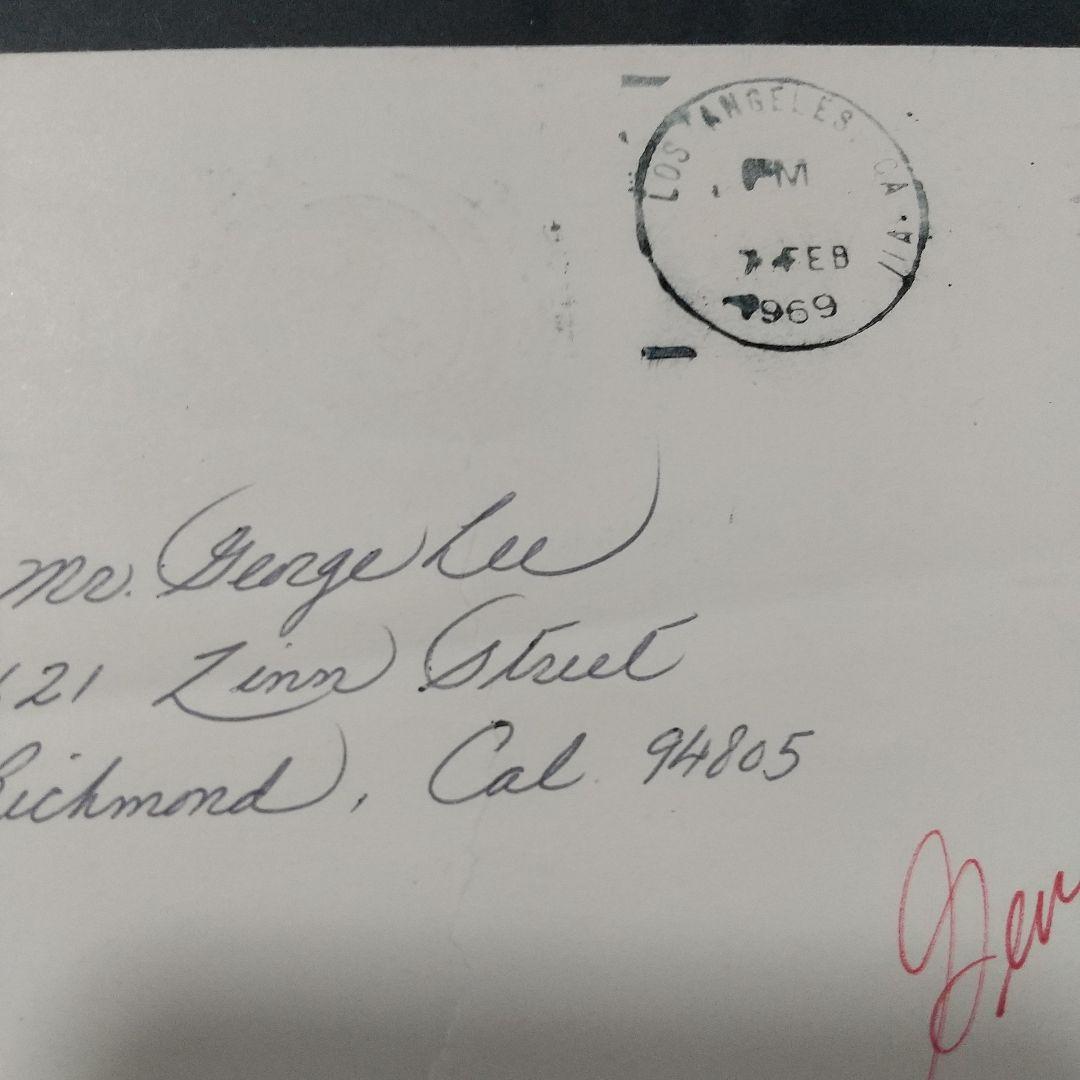 LOS ANGELES, CA
PM
FEB
1969
Mr. George Lee
621 Zinn Street
Richmond, Cal. 94805